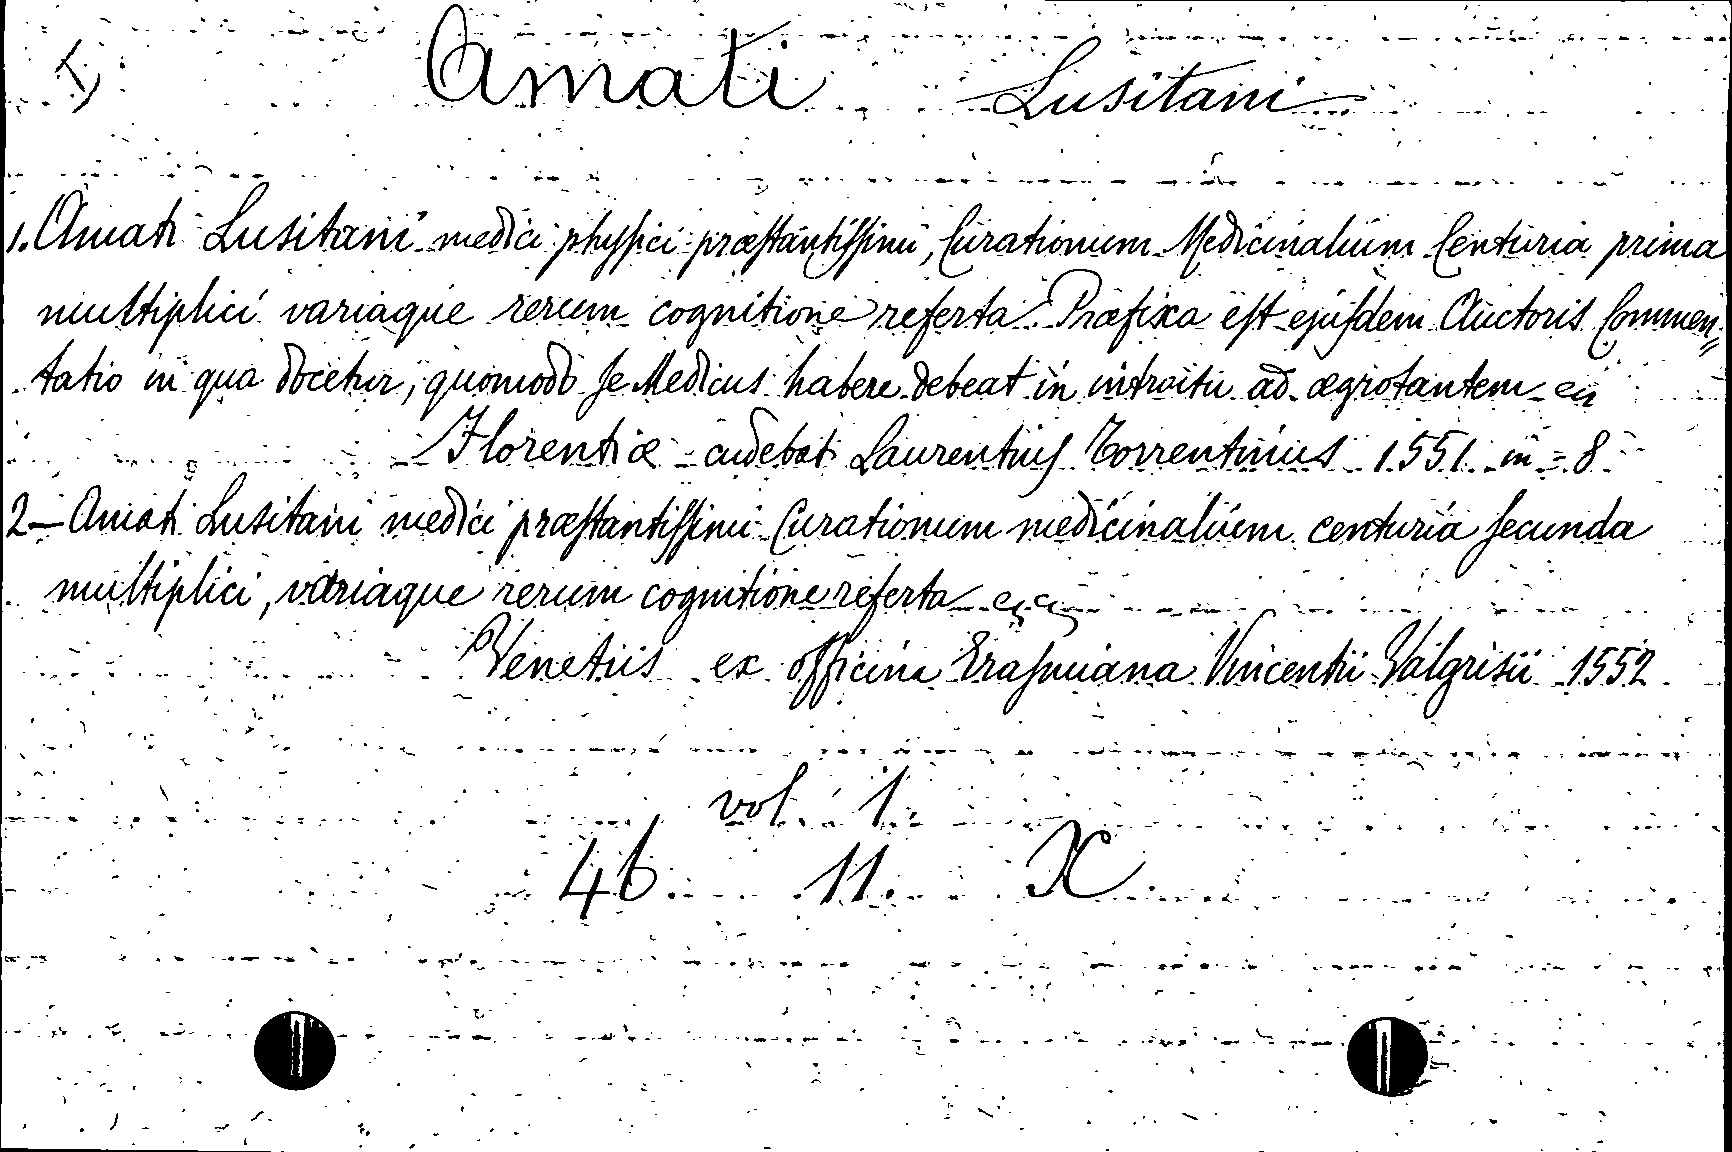 I
Amati Lusitani
1. Amati Lusitani medici physici præstantissimi, Curationum Medicinalium Centuria prima
multiplici variaque rerum cognitione referta. Præfixa est ejusdem Auctoris Commen=
tatio in qua docetur, quomodo se Medicus habere debeat in introitu ad ægrotantem
Florentiæ cudebat Laurentius Torrentinus 1551 in - 8
2 - Amati Lusitani medici præstantissimi Curationum medicinalium centuria secunda
multiplici, variaque rerum cognitione referta
Venetiis ex officina Erasmiana Vincentii Valgrisii 1552
vol. 1.
46. 11. X.